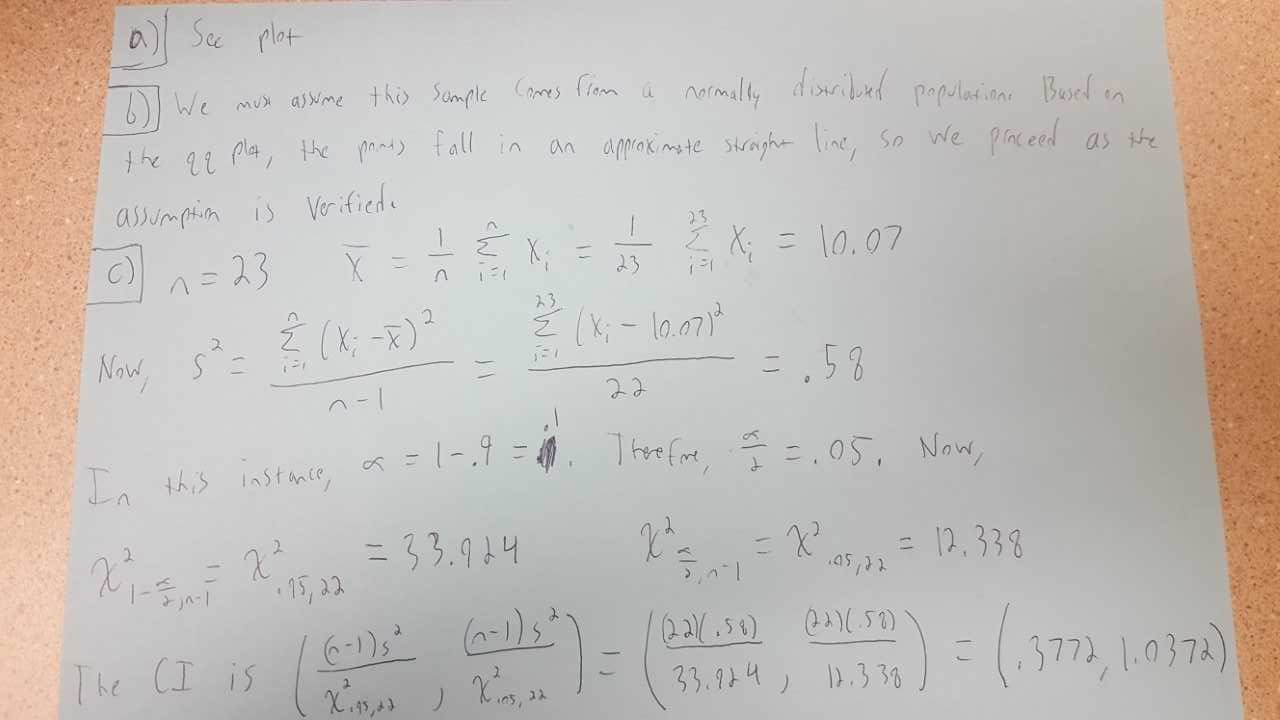 a) See plot
b) We must assume this sample comes from a normally distributed population. Based on
the qq plot, the points fall in an approximate straight line, so we proceed as the
assumption is verified.
c) n = 23 x̄ = 1/n Σ_{i=1}^{n} x_i = 1/23 Σ_{i=1}^{23} x_i = 10.07
Now, s² = Σ_{i=1}^{n} (x_i - x̄)² / n-1 = Σ_{i=1}^{23} (x_i - 10.07)² / 22 = .58
In this instance, α = 1-.9 = .1. Therefore, α/2 = .05. Now,
χ²_{1-α/2, n-1} = χ²_{.95,22} = 33.924 χ²_{α/2, n-1} = χ²_{.05,22} = 12.338
The CI is ((n-1)s² / χ²_{.95,22}, (n-1)s² / χ²_{.05,22}) = ((22)(.58) / 33.924, (22)(.58) / 12.338) = (.3772, 1.0372)